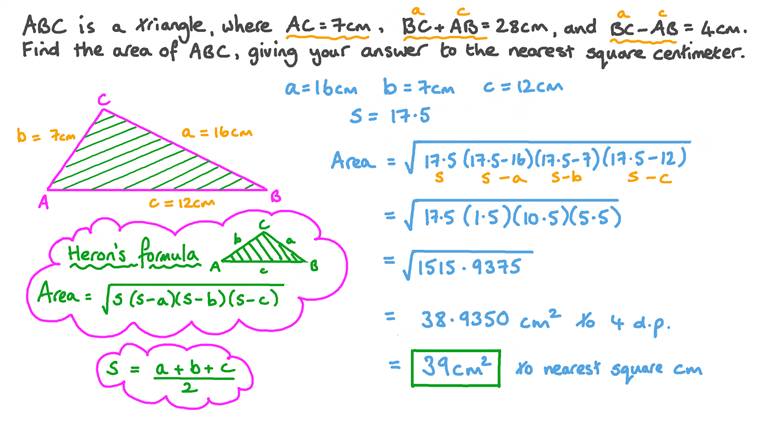 ABC is a triangle, where AC = 7cm, BC + AB = 28cm, and BC - AB = 4cm.
a c a c
Find the area of ABC, giving your answer to the nearest square centimeter.
a = 16cm b = 7cm c = 12cm
s = 17.5
C
b = 7cm
a = 16cm
A
B
c = 12cm
Area = √17.5 (17.5-16)(17.5-7)(17.5-12)
s s-a s-b s-c
= √17.5 (1.5)(10.5)(5.5)
= √1515.9375
= 38.9350 cm² to 4 d.p.
= 39cm² to nearest square cm
Heron's formula
C
b a
A c B
Area = √s(s-a)(s-b)(s-c)
s = a + b + c
2